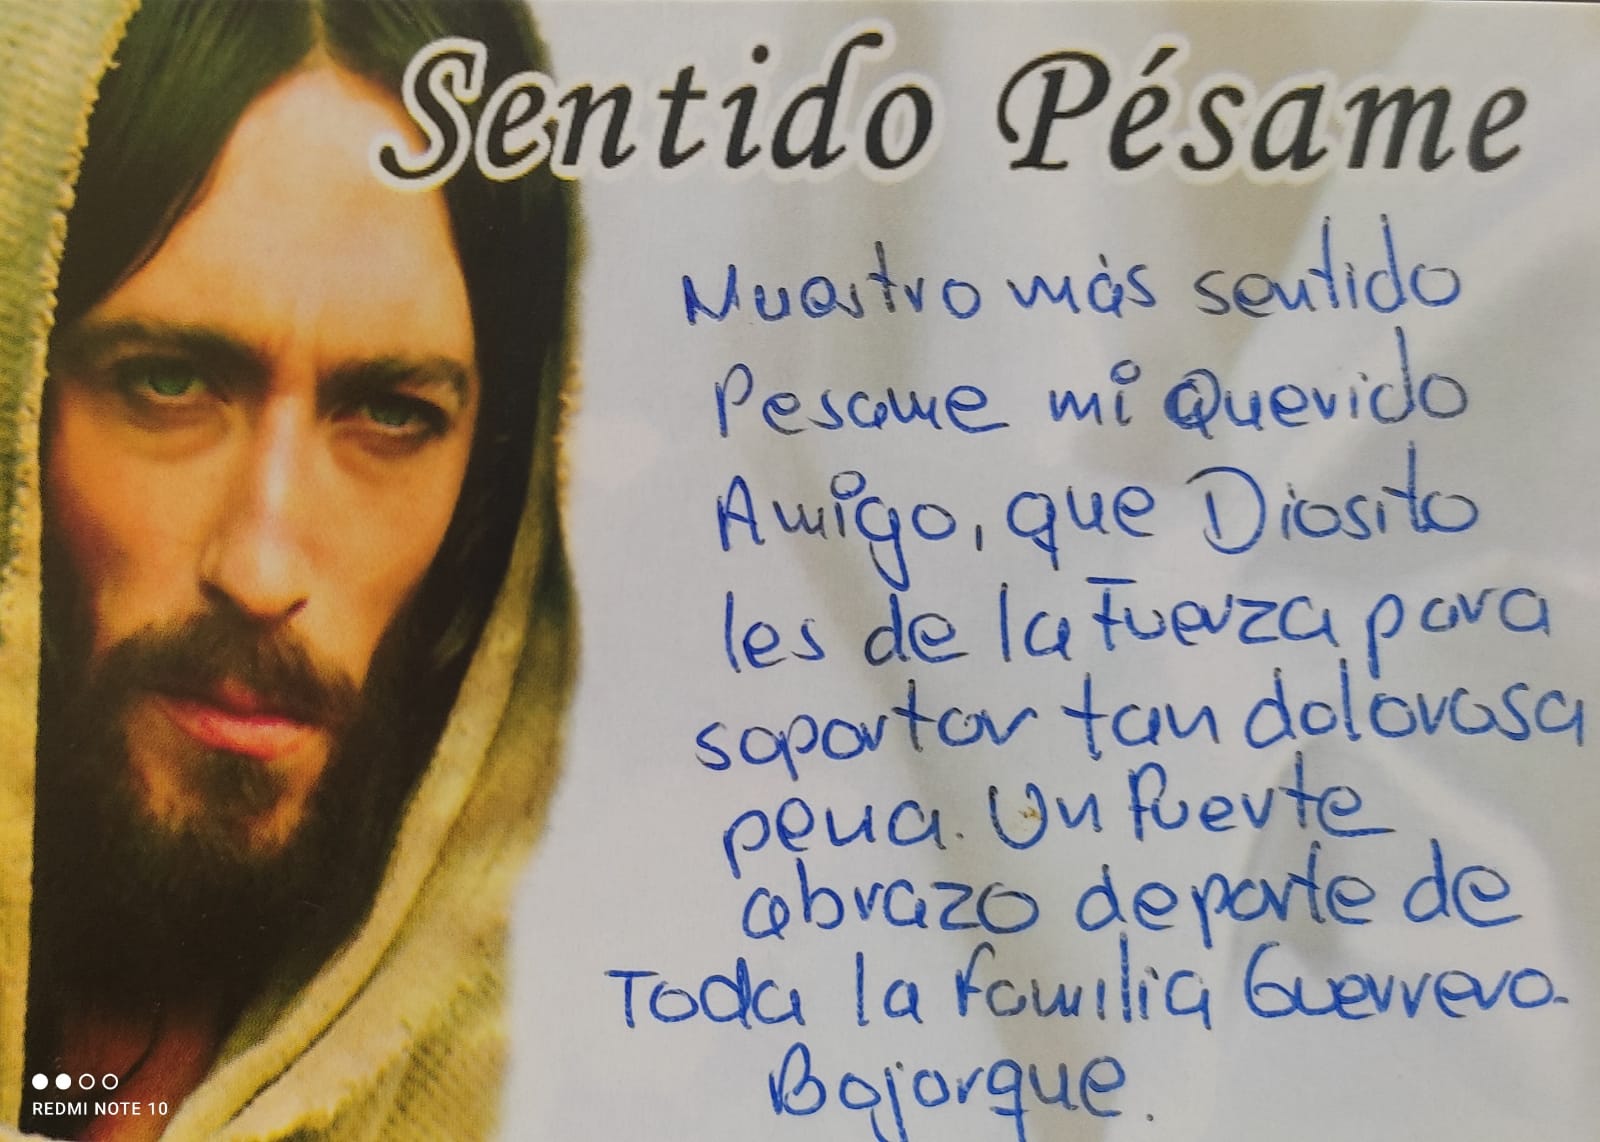 Sentido Pésame
Nuestro más sentido
Pesame mi Querido
Amigo, que Diosito
les de la Fuerza para
soportar tan dolorosa
pena. Un fuerte
abrazo de parte de
Toda la familia Guerrero.
Bojorque.
REDMI NOTE 10